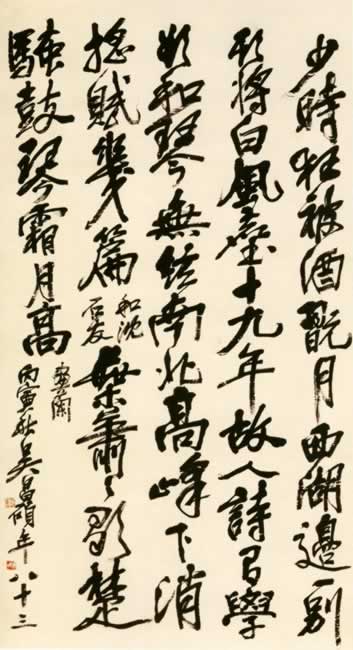 少時狂被酒翫月西湖邊一別
將白風塵十九年故人詩學
和琴無絃南北高峰下消
賦幾篇
和沈
石友
蕭楚
騷鼓琴霜月高
蘭
丙寅秋吳昌碩年八十三